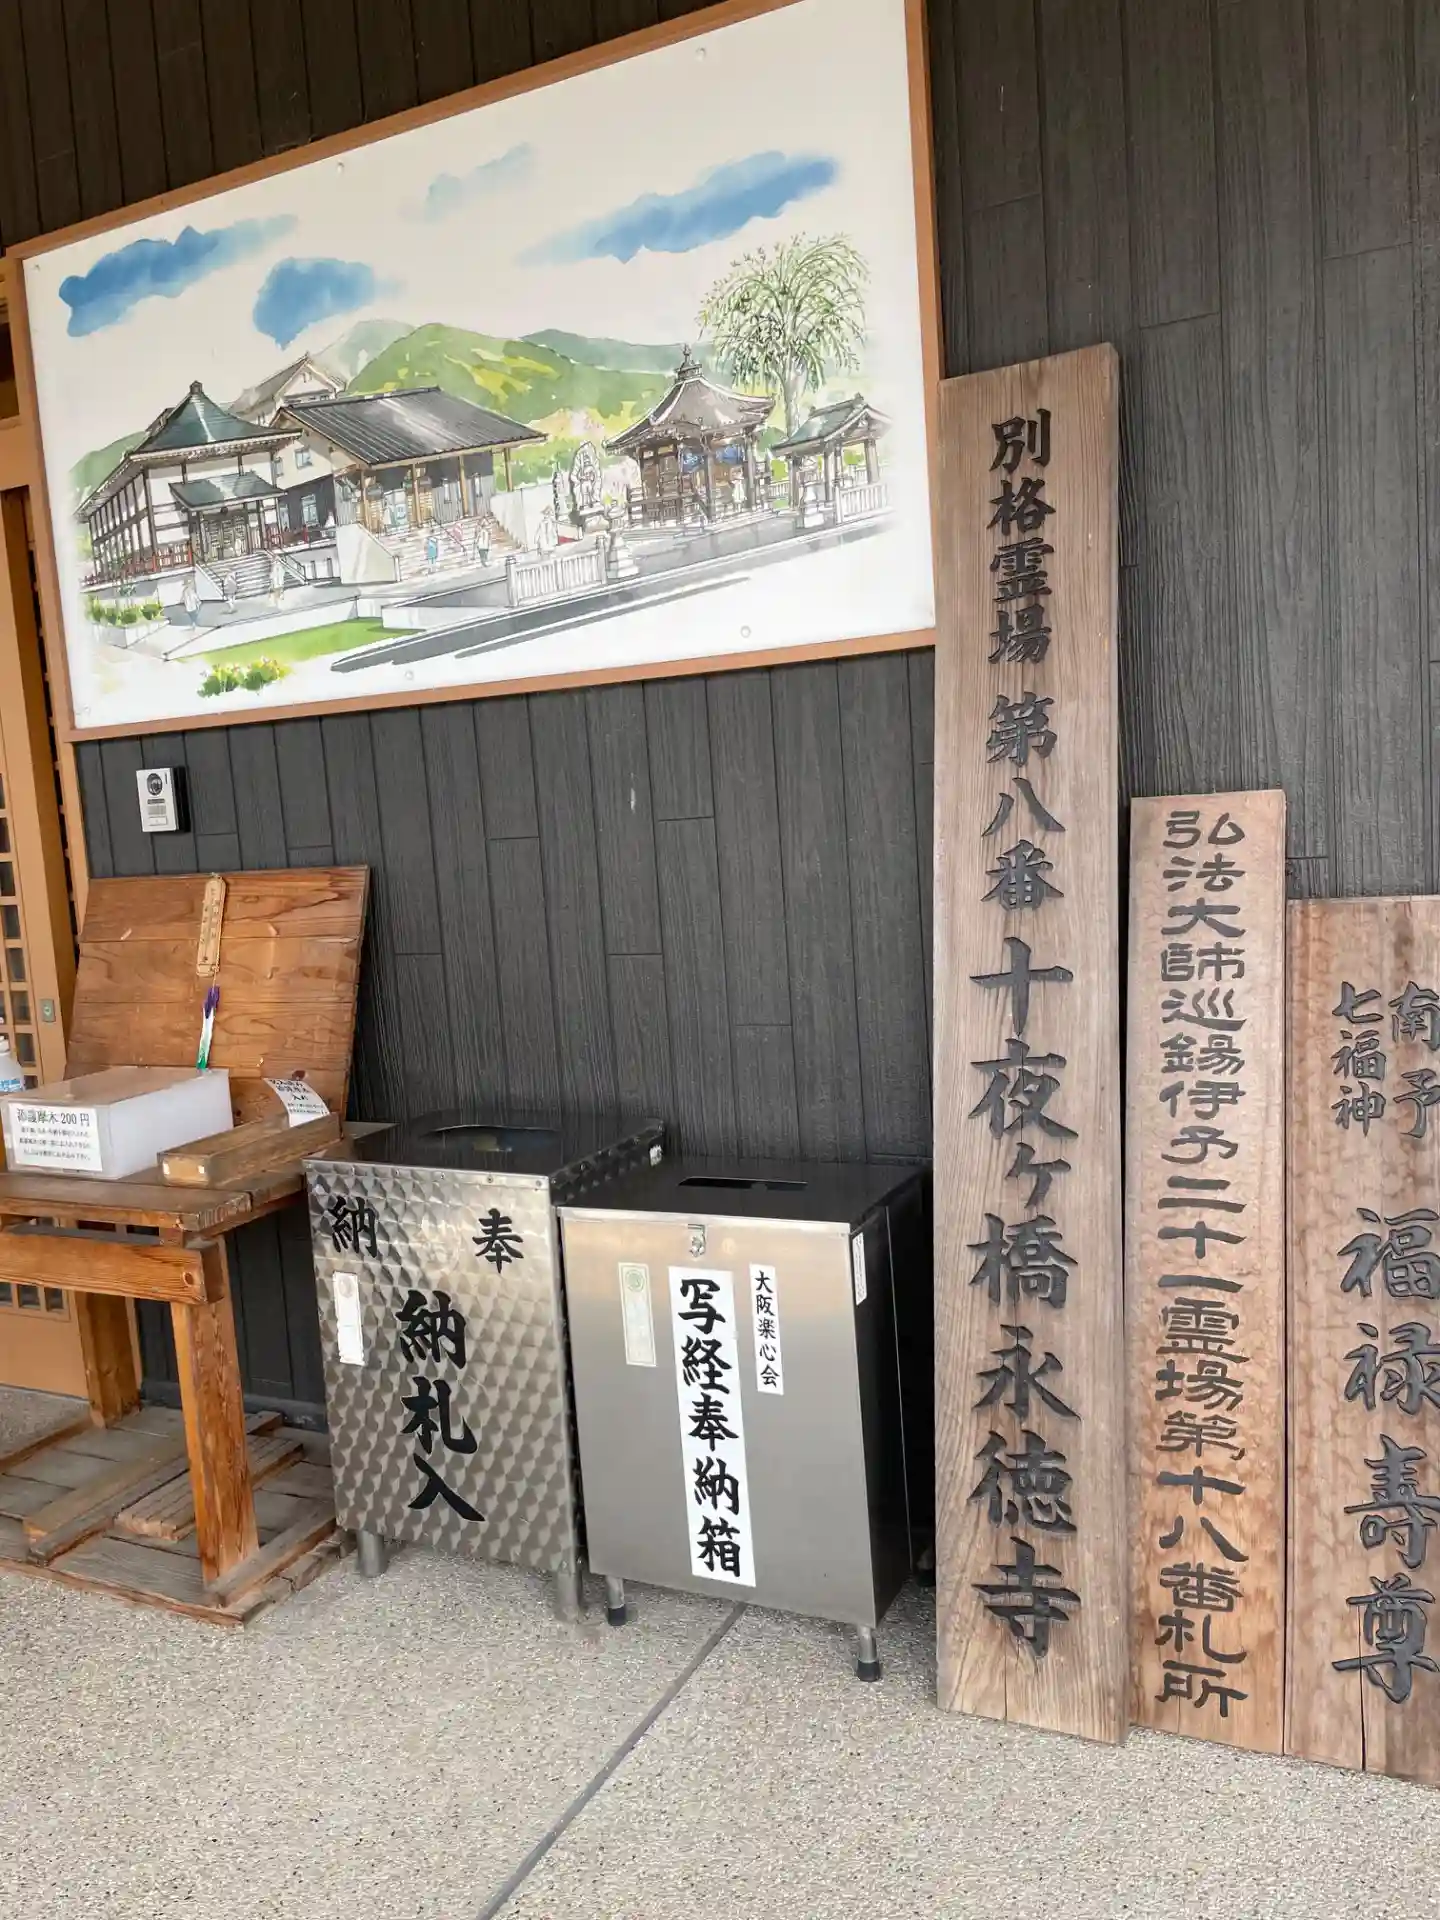 別格霊場 第八番 十夜ヶ橋永徳寺
弘法大師巡錫伊予二十一霊場第十八番札所
南予
七福神
福禄寿尊
添護摩木200円
奉
納
納札入
大阪楽心会
写経奉納箱